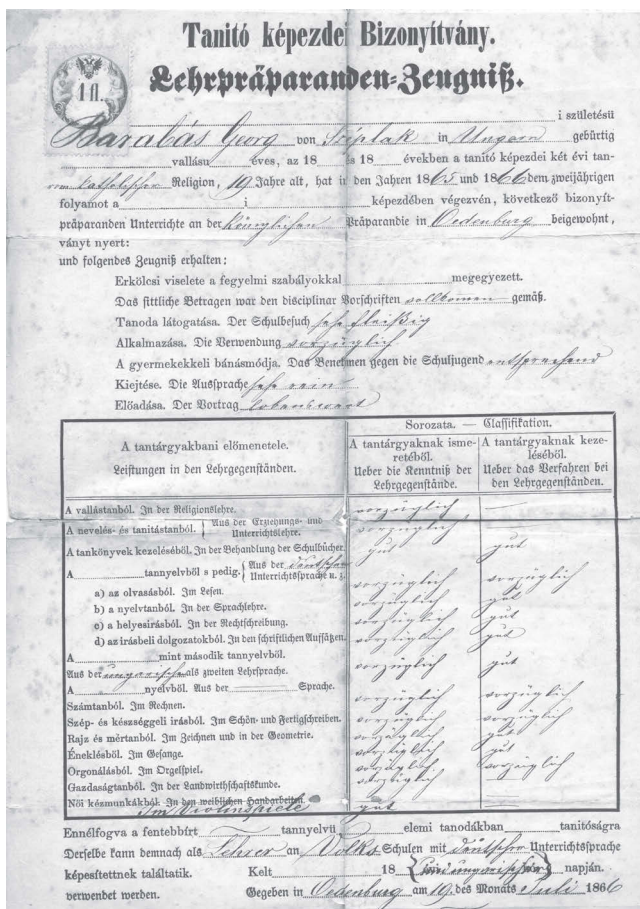 Tanitó képezdei Bizonyítvány.
Lehrpräparanden-Zeugniß.
1 fl.
i születésü
Barabás Georg von Széplak in Ungarn gebürtig
vallásu éves, az 18 és 18 években a tanitó képezdei két évi tan-
röm. katholischer Religion, 19 Jahre alt, hat in den Jahren 1865 und 1866 dem zweijährigen
folyamot a i képezdében végezvén, következő bizonyít-
präparanden Unterrichte an der königlichen Präparandie in Oedenburg beigewohnt,
ványt nyert:
und folgendes Zeugniß erhalten:
Erkölcsi viselete a fegyelmi szabályokkal megegyezett.
Das sittliche Betragen war den disciplinar Vorschriften vollkomen gemäß.
Tanoda látogatása. Der Schulbesuch sehr fleißig
Alkalmazása. Die Verwendung vorzüglich
A gyermekekkeli bánásmódja. Das Benehmen gegen die Schuljugend entsprechend
Kiejtése. Die Aussprache sehr rein
Előadása. Der Vortrag lobenswert
Sorozata. — Classifikation.
A tantárgyakbani előmenetele.
Leistungen in den Lehrgegenständen.
A tantárgyaknak isme-
retéből.
Ueber die Kenntniß der
Lehrgegenstände.
A tantárgyaknak keze-
léséből.
Ueber das Verfahren bei
den Lehrgegenständen.
A vallástanból. In der Religionslehre. vorzüglich —
A nevelés- és tanitástanból. { Aus der Erziehungs- und Unterrichtslehre. vorzüglich —
A tankönyvek kezeléséből. In der Behandlung der Schulbücher. gut gut
A tannyelvből s pedig. { Aus der deutschen Unterrichtssprache u. z.
a) az olvasásból. Im Lesen. vorzüglich vorzüglich
b) a nyelvtanból. In der Sprachlehre. vorzüglich gut
c) a helyesirásból. In der Rechtschreibung. vorzüglich gut
d) az irásbeli dolgozatokból. In den schriftlichen Aufsätzen. vorzüglich gut
A mint második tannyelvből.
Aus der ungarischen als zweiten Lehrsprache. vorzüglich gut
A nyelvből. Aus der Sprache.
Számtanból. Im Rechnen. vorzüglich vorzüglich
Szép- és készséggeli irásból. Im Schön- und Fertigschreiben. vorzüglich vorzüglich
Rajz és mértanból. Im Zeichnen und in der Geometrie. vorzüglich gut
Éneklésből. Im Gesange. vorzüglich gut
Orgonálásból. Im Orgelspiel. vorzüglich vorzüglich
Gazdaságtanból. In der Landwirthschaftskunde. vorzüglich
Női kézmunkákbók. In den weiblichen Handarbeiten.
Im Violinspiele gut —
Ennélfogva a fentebbírt tannyelvü elemi tanodákban tanitóságra
Derselbe kann demnach als Lehrer an Volks Schulen mit deutscher Unterrichtssprache
képesítettnek találtatik. Kelt 18 (und ungarischer) napján.
verwendet werden. Gegeben in Oedenburg am 19. des Monats Juli 1866